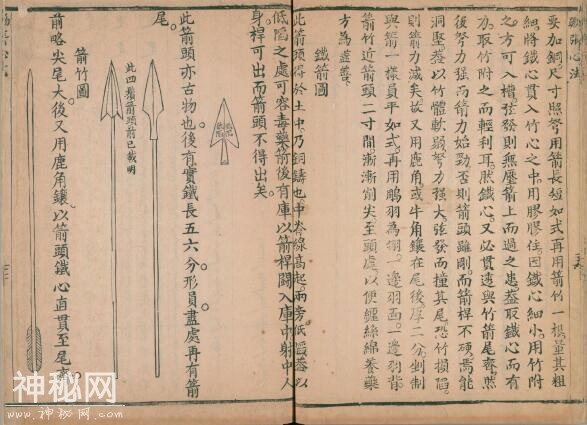 要加銅尺寸照弩用箭長短如式再用箭竹一根量其粗
細將鐵心貫入竹心之中用膠膠住因鐵心細小用竹附
之方可入槽弦發則無壓箭上而過之患蓋取鐵心而有
力取竹附之而輕利耳然鐵心又必貫透與竹箭尾齊然
後弩力強而箭力始勁否則箭頭雖剛而箭桿不硬焉能
洞堅蓋以竹體軟弱弩力強大弦發而撞其尾恐竹損陷
則箭力減矣故又用鹿角或牛角鑲在尾後厚二分剉制
與箭一樣員平如式再用鵰羽為翎一邊羽面一邊羽背
箭竹近箭頭二寸間漸漸削尖至頭處以便纏絲綿養藥
方為盡善
鐵箭圖
此箭頭得於土中乃銅鑄也中脊線高起兩旁低
低陷之處可容毒藥箭後有庫以箭桿鬪入庫中射中人
身桿可出而箭頭不得出矣
此箭頭亦古物也後有實鐵長五六分形員盡處再有箭
尾
此四鬅箭頭前已載明
箭竹圖
前略尖尾大後又用鹿角鑲以箭頭鐵心直貫至尾
神秘网
www.shenmiwang.com
神秘网
www.shenmiwang.com